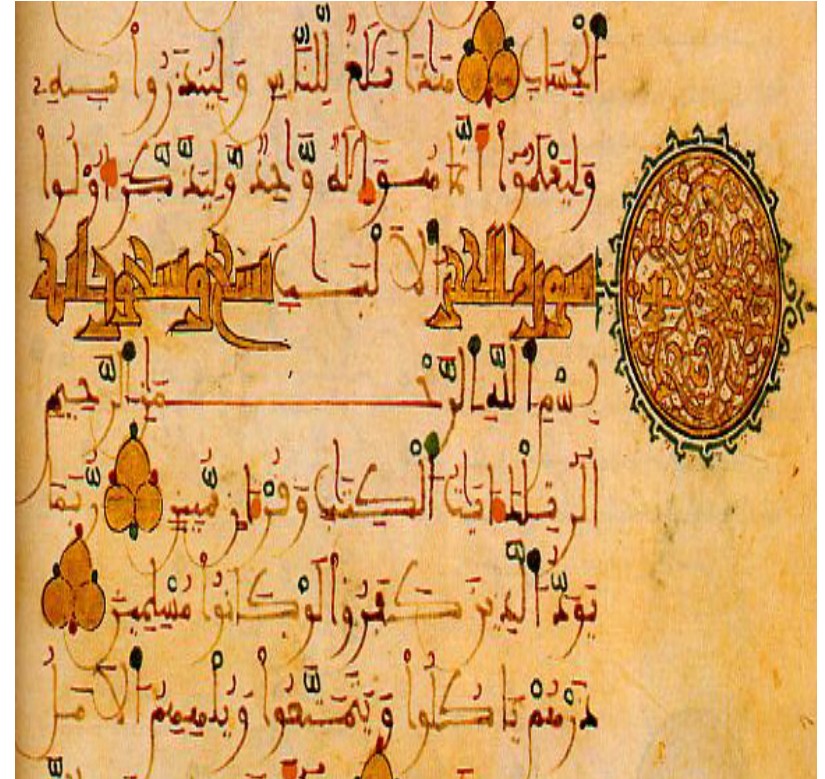 اَ۬لْحِسَابِ هَٰذَا بَلَٰغٞ لِّلنَّاسِ وَلِيُنذَرُوا۟ بِهِۦ
وَلِيَعْلَمُوٓا۟ أَنَّمَا هُوَ إِلَٰهٞ وَٰحِدٞ وَلِيَذَّكَّرَ أُو۟لُوا۟
سورة الحجر اَ۬لَالْبَٰبِ تسع وتسعون اية
بِسْمِ اِ۬للَّهِ اِ۬لرَّحْمَٰنِ اِ۬لرَّحِيمِ
الٓر تِلْكَ ءَايَٰتُ اُ۬لْكِتَٰبِ وَقُرْءَانٖ مُّبِينٖ رُّبَمَا
يَوَدُّ اُ۬لذِينَ كَفَرُوا۟ لَوْ كَانُوا۟ مُسْلِمِينَ
ذَرْهُمْ يَاكُلُوا۟ وَيَتَمَتَّعُوا۟ وَيُلْهِهِمُ اُ۬لَامَلُ